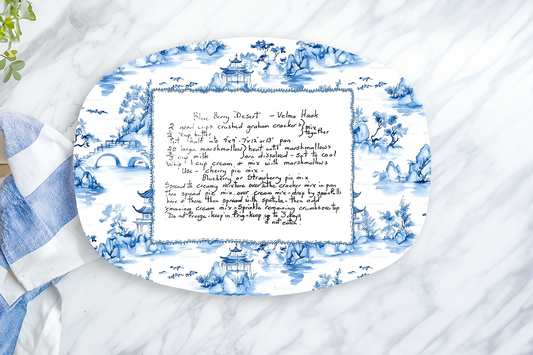 Blue Berry Desert - Velma Hook
2 good cups crushed graham crackers } mix
1/4 cup butter } together
Put half into 9"x9" - 7"x12" or 13" pan
20 large marshmallows } heat until marshmallows
1/2 cup milk are dissolved - set to cool
Whip 1 cup cream & mix with marshmallows
Use - cherry pie mix -
Blueberry or Strawberry pie mix
Spread 1/2 creamy mixture over the cracker mix in pan
Then spread pie mix over cream mix - drop by spoonfulls
here & there then spread with spatula - then add
remaining cream mix - Sprinkle remaining crumbs on top
Do not freeze - keep in frig - keep up to 3 days
if not eaten!